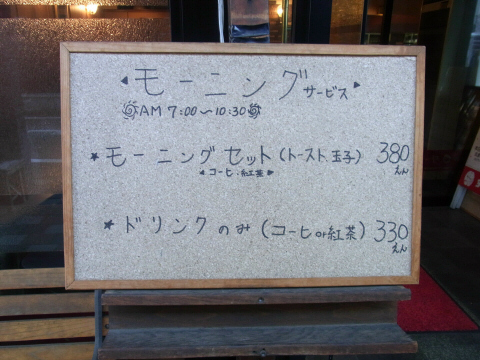 モーニングサービス
AM 7:00～10:30
★モーニングセット(トースト、玉子) 380えん
コーヒ・紅茶
★ドリンクのみ(コーヒor紅茶) 330えん